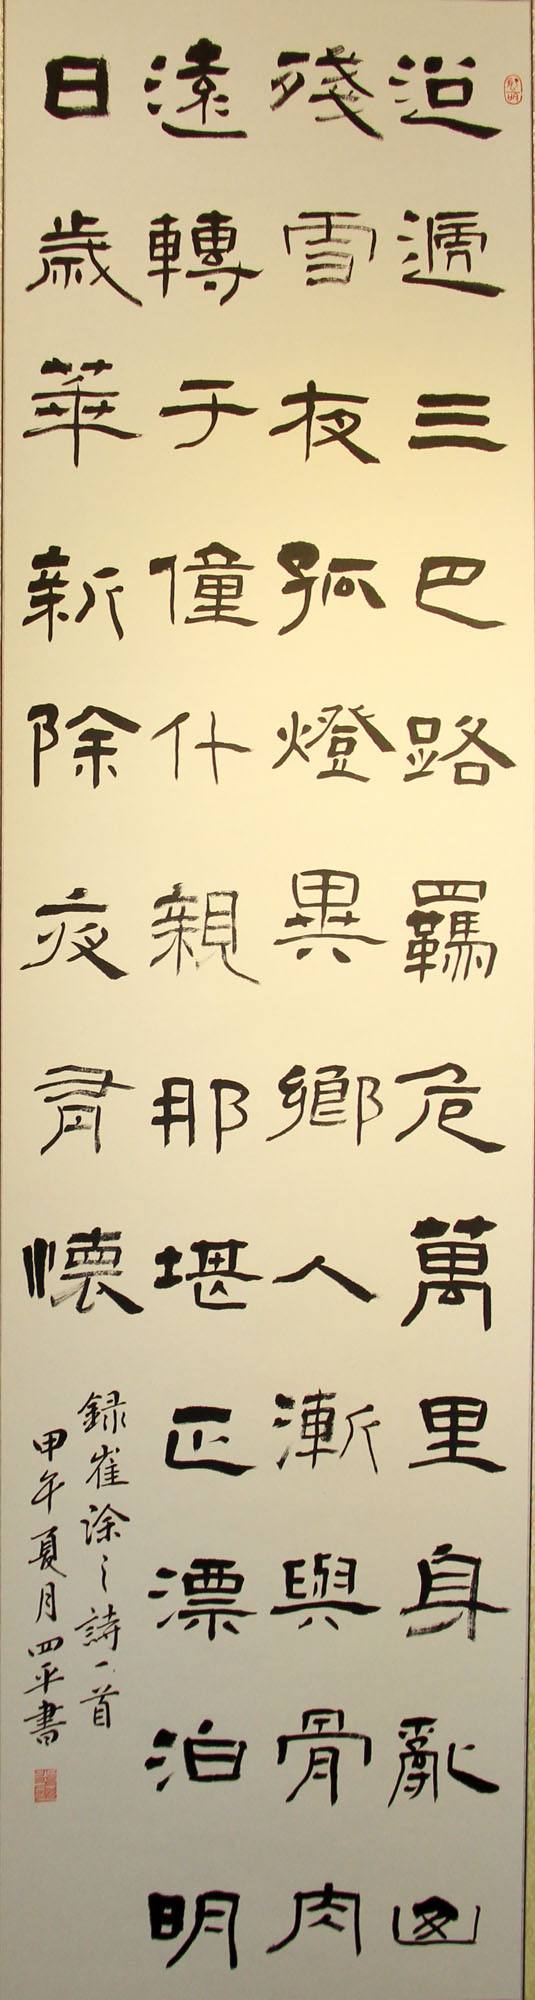 迢遞三巴路羈危萬里身亂山
殘雪夜孤燈異鄉人漸與骨肉
遠轉于僮什親那堪正漂泊明
日歲華新除夜有懷
録崔涂之詩一首
甲午夏月四平書